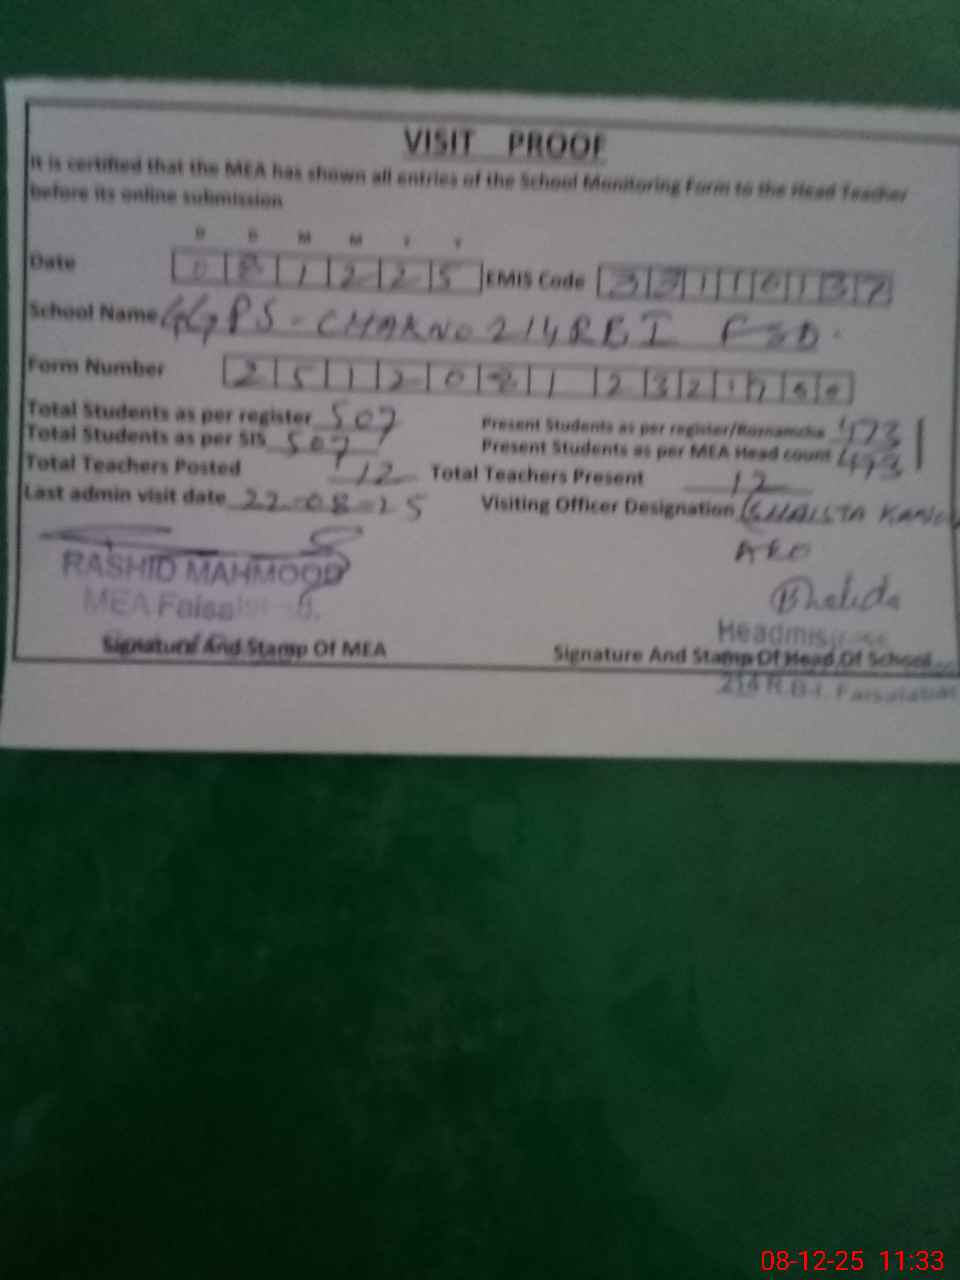 VISIT PROOF
It is certified that the MEA has shown all entries of the School Monitoring Form to the Head Teacher
before its online submission
D D M M Y Y
Date 0 8 1 2 2 5 EMIS Code 3 3 1 1 0 1 3 7
School Name GGPS - CHAK NO 214 RB I FSD.
Form Number 2 5 1 2 0 8 1 2 3 2 1 7
Total Students as per register 507 Present Students as per register/Roznamcha 473
Total Students as per SIS 507 Present Students as per MEA Head count 473
Total Teachers Posted 12 Total Teachers Present 12
Last admin visit date 22-08-25 Visiting Officer Designation SHAISTA
AEO
RASHID MAHMOOD
MEA
Signature And Stamp Of MEA
Signature And Stamp Of Head Of School
214 R.B-I. Faisalabad
08-12-25 11:33